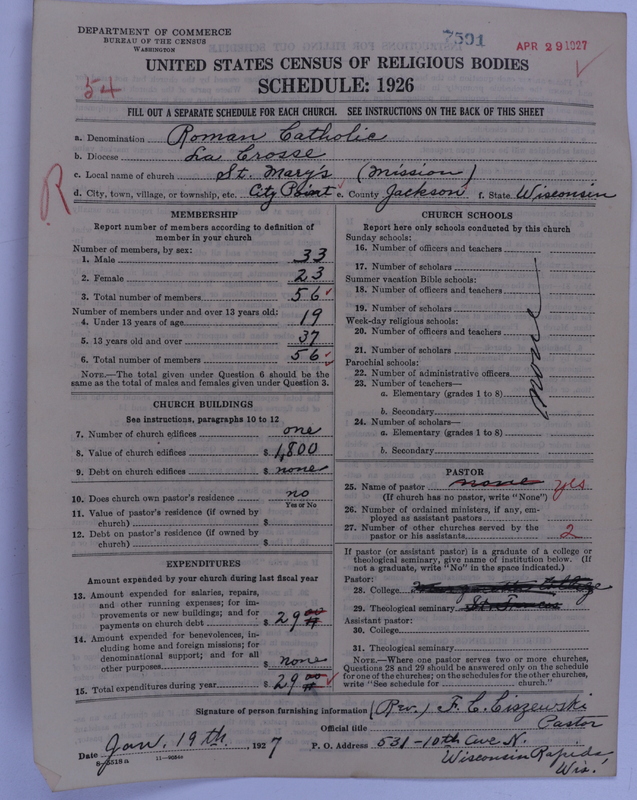 DEPARTMENT OF COMMERCE
BUREAU OF THE CENSUS
WASHINGTON
7591
APR 29 1927
54
UNITED STATES CENSUS OF RELIGIOUS BODIES
SCHEDULE: 1926
FILL OUT A SEPARATE SCHEDULE FOR EACH CHURCH. SEE INSTRUCTIONS ON THE BACK OF THIS SHEET
a. Denomination Roman Catholic
b. Diocese La Crosse
c. Local name of church St. Mary's (Mission)
d. City, town, village, or township, etc. City Point e. County Jackson f. State Wisconsin
R
MEMBERSHIP
Report number of members according to definition of
member in your church
Number of members, by sex:
1. Male 33
2. Female 23
3. Total number of members 56
Number of members under and over 13 years old:
4. Under 13 years of age 19
5. 13 years old and over 37
6. Total number of members 56
NOTE.—The total given under Question 6 should be
the same as the total of males and females given under Question 3.
CHURCH BUILDINGS
See instructions, paragraphs 10 to 12
7. Number of church edifices one
8. Value of church edifices $ 1,800
9. Debt on church edifices $ none
10. Does church own pastor's residence no
Yes or No
11. Value of pastor's residence (if owned by
church) $
12. Debt on pastor's residence (if owned by
church) $
EXPENDITURES
Amount expended by your church during last fiscal year
13. Amount expended for salaries, repairs,
and other running expenses; for im-
provements or new buildings; and for
payments on church debt $ 29 00
14. Amount expended for benevolences, in-
cluding home and foreign missions; for
denominational support; and for all
other purposes $ none
15. Total expenditures during year $ 29 00
CHURCH SCHOOLS
Report here only schools conducted by this church
Sunday schools:
16. Number of officers and teachers
17. Number of scholars
Summer vacation Bible schools:
18. Number of officers and teachers
19. Number of scholars
Week-day religious schools:
20. Number of officers and teachers
21. Number of scholars
Parochial schools:
22. Number of administrative officers
23. Number of teachers—
a. Elementary (grades 1 to 8)
b. Secondary
24. Number of scholars—
a. Elementary (grades 1 to 8)
b. Secondary
none
PASTOR
25. Name of pastor none yes
(If church has no pastor, write "None")
26. Number of ordained ministers, if any, em-
ployed as assistant pastors
27. Number of other churches served by the
pastor or his assistants 2
If pastor (or assistant pastor) is a graduate of a college or
theological seminary, give name of institution below. (If
not a graduate, write "No" in the space indicated.)
Pastor:
28. College College
29. Theological seminary St. Francis
Assistant pastor:
30. College
31. Theological seminary
NOTE.—Where one pastor serves two or more churches,
Questions 28 and 29 should be answered only on the schedule
for one of the churches; on the schedules for the other churches,
write "See schedule for church."
Signature of person furnishing information (Rev.) F. C. Ciszewski
Official title Pastor
Date Jan. 19th, 1927 P. O. Address 531-10th Ave N.
Wisconsin Rapids,
Wis.